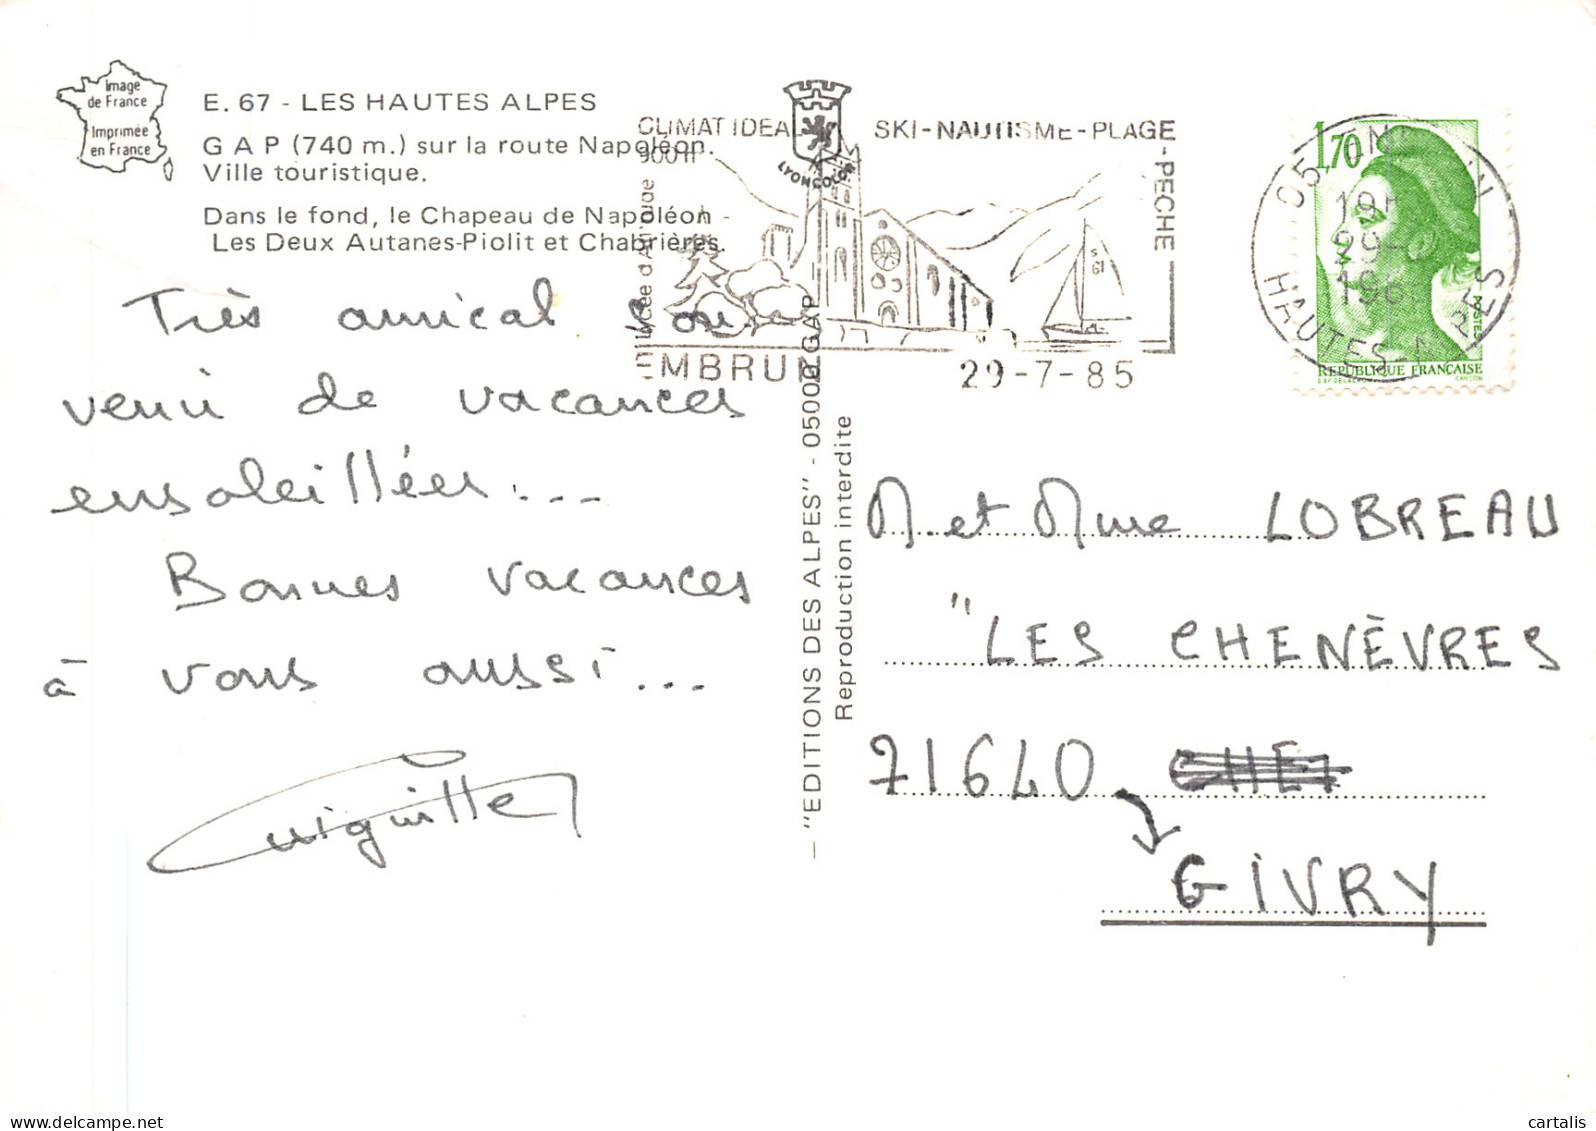 Image
de France
Imprimée
en France
E. 67 - LES HAUTES ALPES
GAP (740 m.) sur la route Napoléon.
Ville touristique.
Dans le fond, le Chapeau de Napoléon -
Les Deux Autanes-Piolit et Chabrières.
Très amical sou-
venir de vacances
ensoleillées...
Bonnes vacances
à vous aussi...
CLIMAT IDEAL
SKI - NAUTISME - PLAGE
- PECHE
LYONCOLOR
EMBRUN
29-7-85
— "EDITIONS DES ALPES" - 05000 GAP —
Reproduction interdite
1,70
POSTES
REPUBLIQUE FRANÇAISE
HAUTES-ALPES
M. et Mme LOBREAU
"LES CHENÈVRES
71640
GIVRY
cartalis